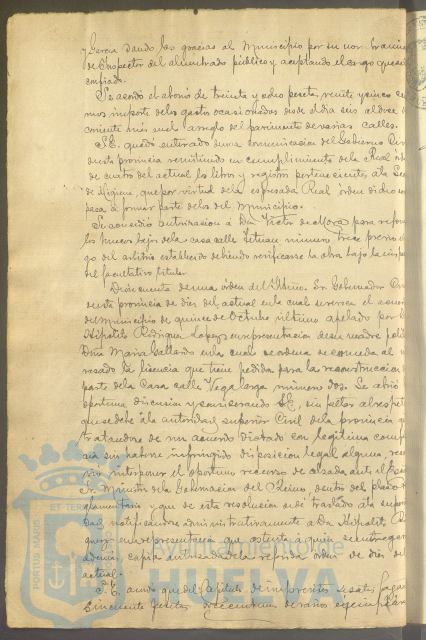 y García dando las gracias al Municipio por su nombramien
de Inspector del alumbrado público y aceptando el cargo que se
confiado.
Se acordó el abono de treinta y ocho pesetas veinte y cinco
mos importe de los gastos ocasionados desde el día seis al doce d
corriente mes en el arreglo del pavimento de varias calles.
S.E. quedó enterado de una comunicación del Gobierno Civ
de esta provincia remitiendo en cumplimiento de la Real or
de cuatro del actual los libros y registros pertenecientes á la Se
de Higiene, que por virtud de la expresada Real orden
á formar parte de los del Municipio.
Se concedió autorización á Don Victor de Mora para refor
los huecos bajos de la casa calle Tetuan número trece previo el
go del arbitrio establecido debiendo verificarse la obra bajo la insp
del facultativo titular.
Dióse cuenta de una orden del Iltmo. Sr. Gobernador Civ
de esta provincia de diez del actual en la cual se revoca el acuer
del Municipio de quince de Octubre último apelado por
Hipolito Rodriguez Lopez en representacion de su madre polí
Doña Maria Gallardo en la cual se ordena se conceda al
resado la licencia que tiene pedida para la reconstrucción
parte de la Casa calle Vega larga número dos. Se abrió
oportuna discusion y considerando S.E, sin faltar al respeto
que se debe á la autoridad superior Civil de la provincia q
tratandose de un acuerdo dictado con legítima comp
cia sin haberse infringido disposicion legal alguna,
interponer el oportuno recurso de alzada ante el Exc
Sr. Ministro de la Gobernacion del Reino, dentro del plazo
glamentario y que de esta resolucion se dé traslado á la supe
dad, notificandose administrativamente á Don Hipolito
guez en la representacion que ostenta á quien se entregará
ademas, copia autorizada de la referida orden de diez del
actual.
S.E. acordó que del Capítulo de imprevistos se sa
cincuenta pesetas
PORTUS MARIS ET TERRÆ
Ayuntamiento de
HUELVA